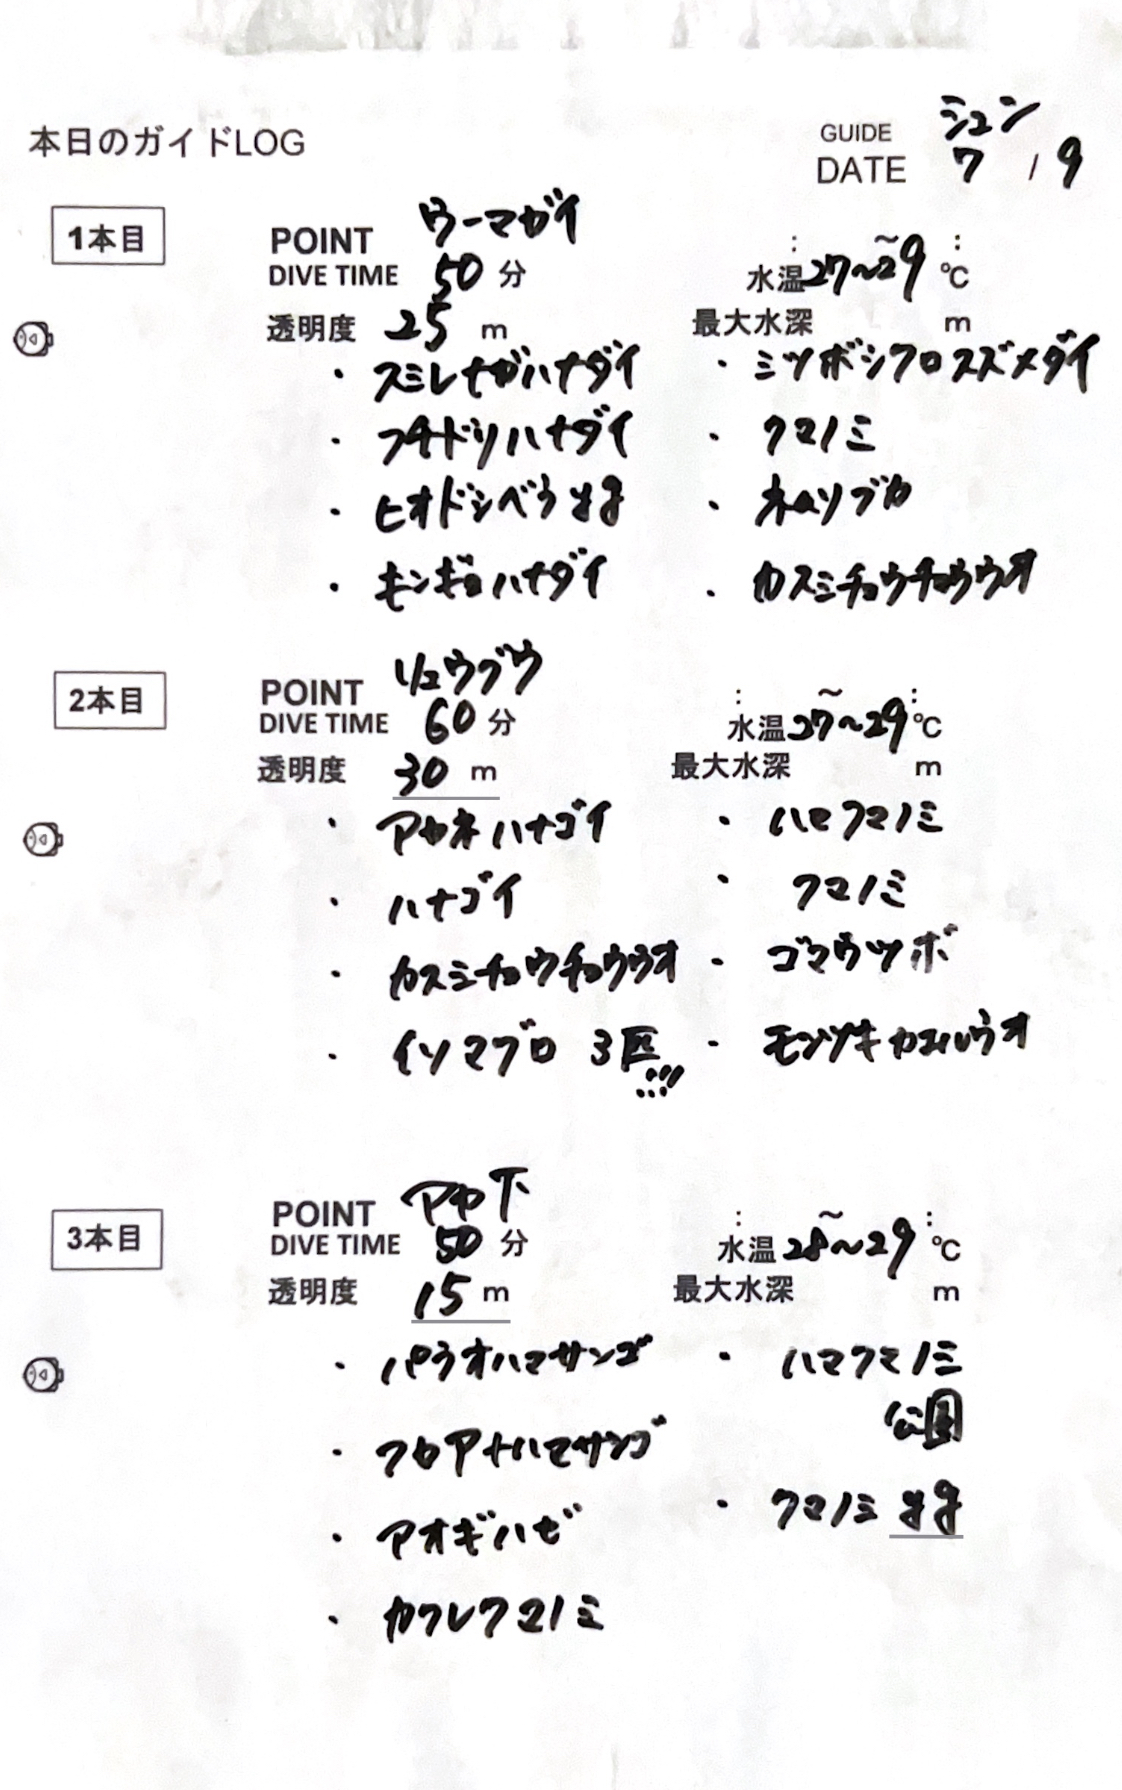 本日のガイドLOG
GUIDE シュン
DATE 7 / 9
1本目
POINT ウーマガイ : ～ :
DIVE TIME 50 分 水温 27~29 ℃
透明度 25 m 最大水深 m
・スミレナガハナダイ ・ミツボシクロスズメダイ
・フチドリハナダイ ・クマノミ
・ヒオドシベラ yg ・ネムリブカ
・キンギョハナダイ ・カスミチョウチョウウオ
2本目
POINT リュウグウ : ～ :
DIVE TIME 60 分 水温 27~29 ℃
透明度 30 m 最大水深 m
・アカネハナゴイ ・ハマクマノミ
・ハナゴイ ・クマノミ
・カスミチョウチョウウオ ・ゴマウツボ
・イソマグロ 3匹!!! ・モンツキカエルウオ
3本目
POINT アヤ下 : ～ :
DIVE TIME 50 分 水温 28~29 ℃
透明度 15 m 最大水深 m
・パラオハマサンゴ ・ハマクマノミ
公園
・フカアナハマサンゴ
・クマノミ yg
・アオギハゼ
・カクレクマノミ